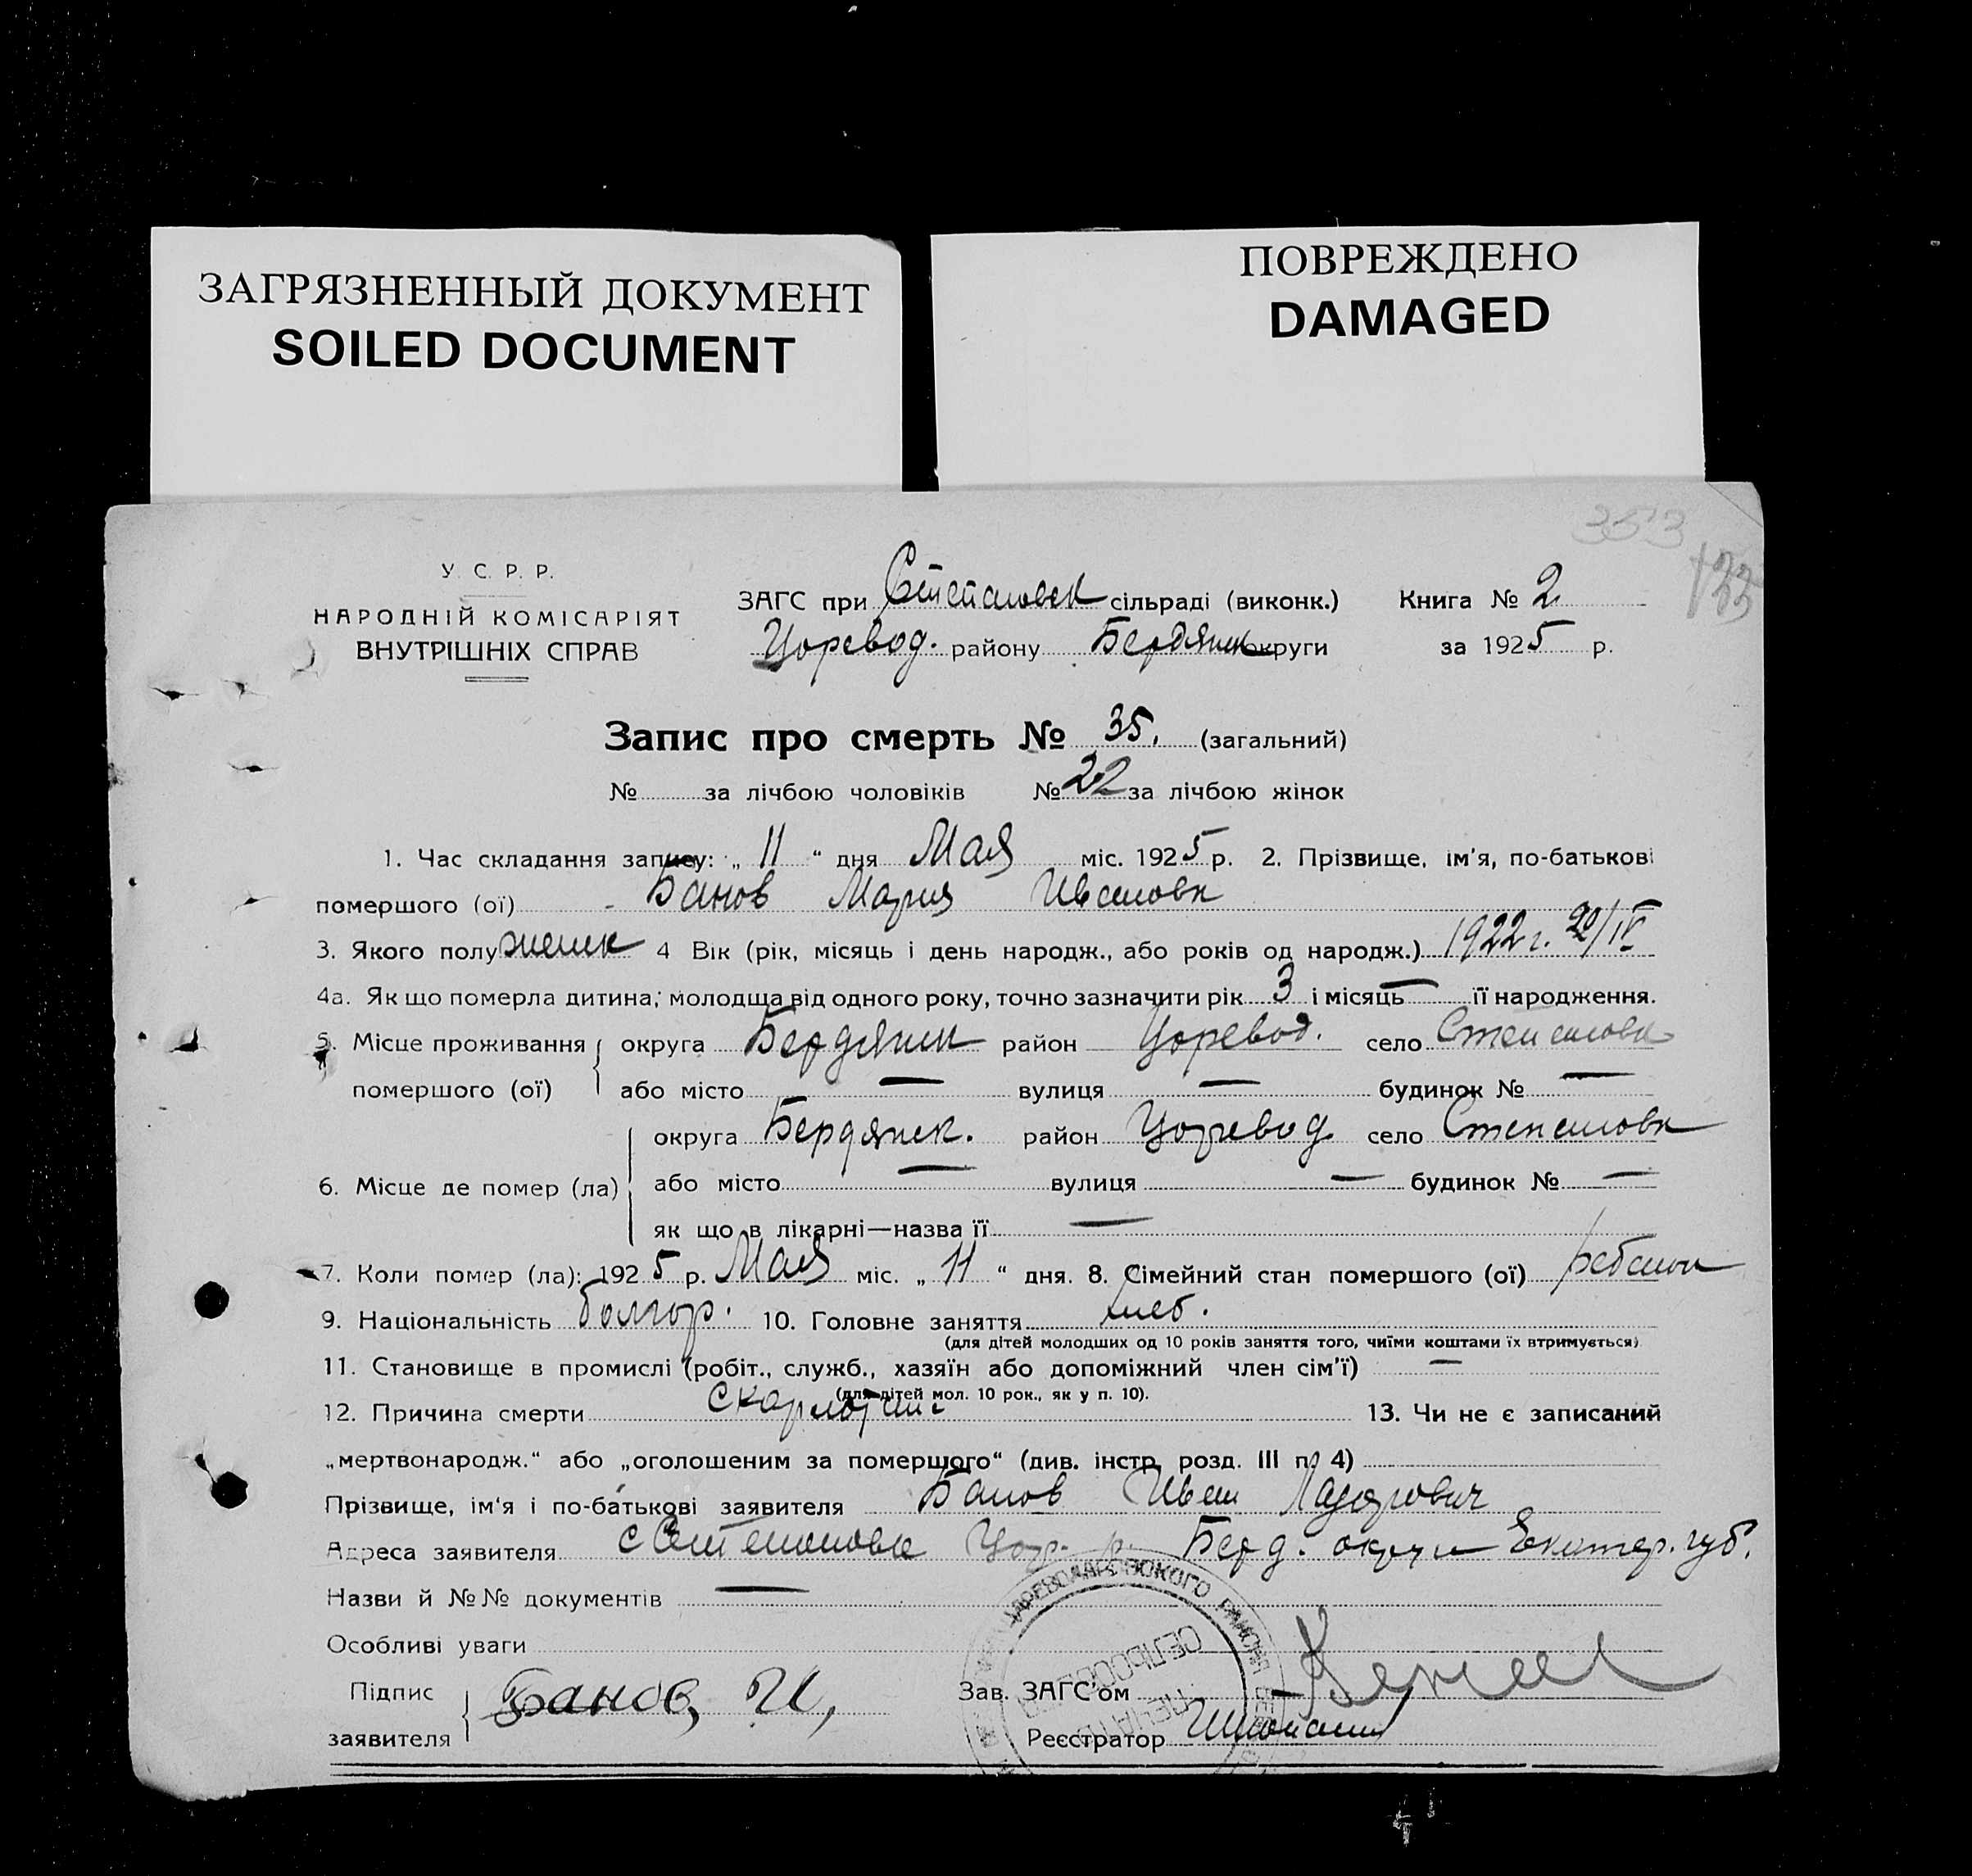 ЗАГРЯЗНЕННЫЙ ДОКУМЕНТ
SOILED DOCUMENT
ПОВРЕЖДЕНО
DAMAGED
353
133
У. С. Р. Р.
НАРОДНІЙ КОМІСАРІЯТ
ВНУТРІШНІХ СПРАВ
ЗАГС при Степановск сільраді (виконк.) Книга № 2
Царевод. району Бердянск округи за 1925 р.
Запис про смерть № 35. (загальний)
№ за лічбою чоловіків № 22 за лічбою жінок
1. Час складання запису: „ 11 “ дня Мая міс. 1925 р. 2. Прізвище, ім'я, по-батькові
помершого (ої) Банов Мария Ивановн
3. Якого полу женск 4 Вік (рік, місяць і день народж., або років од народж.) 1922 г. 20/IV
4а. Як що померла дитина, молодща від одного року, точно зазначити рік 3 і місяць — її народження.
5. Місце проживання помершого (ої) округа Бердянск район Царевод. село Степановк
або місто — вулиця — будинок № —
6. Місце де помер (ла) округа Бердянск. район Царевод. село Степановк
або місто — вулиця — будинок № —
як що в лікарні—назва її —
7. Коли помер (ла): 1925 р. Мая міс. „ 11 “ дня. 8. Сімейний стан помершого (ої) ребенок
9. Національність болгар. 10. Головне заняття хлеб.
(для дітей молодших од 10 років заняття того, чиїми коштами їх втримується)
11. Становище в промислі (робіт., служб., хазяїн або допоміжний член сім'ї) —
(для дітей мол. 10 рок., як у п. 10).
12. Причина смерти Скарлотина 13. Чи не є записаний
„мертвонародж.“ або „оголошеним за помершого“ (див. інстр. розд. III п. 4)
Прізвище, ім'я і по-батькові заявителя Банов Иван Лазарович
Адреса заявителя с Степановк Цар. р. Берд. округи Екатер. губ.
Назви й №№ документів —
Особливі уваги
Підпис заявителя Банов, И,
Зав. ЗАГС'ом
Реєстратор
ЦАРЕВОДАРОВСКОГО РАЙОНА
СЕЛЬСОВЕТА
ПЕЧАТЬ